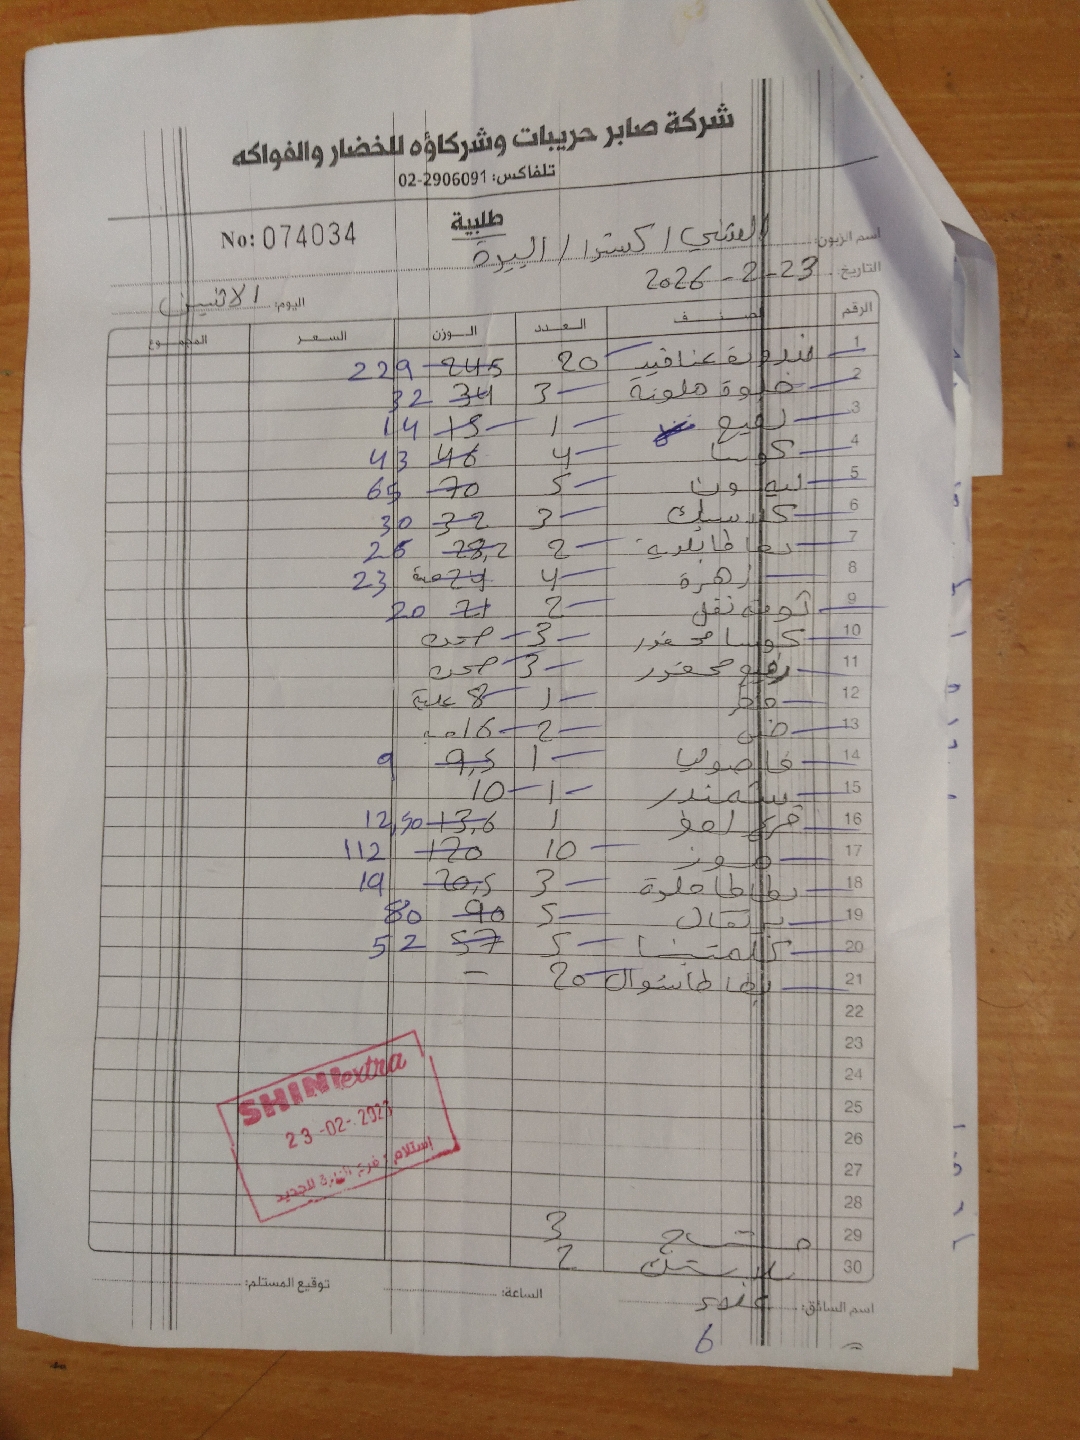 شركة صابر حريبات وشركاؤه للخضار والفواكه
تلفاكس: 02-2906091
طلبية
No: 074034
اسم الزبون: الشني / اكسترا / البيرة
التاريخ: 23-2-2026
اليوم: الاثنين
الرقم الصنف العدد الوزن السعر المجموع
1 بندورة عناقيد 20 245 229
2 حلوة ملونة 3 34 32
3 رفيع 1 15 14
4 كوسا 4 46 43
5 ليمون 5 70 65
6 كلاسيك 3 32 30
7 بطاطا بلدية 2 28,2 26
8 زهرة 4 24 حبة 23
9 ثومة نقل 2 21 20
10 كوسا محفور 3 صحن
11 رفيع محفور 3 صحن
12 فطر 1 8 علبة
13 خس 2 16 حبه
14 فاصوليا 1 9,5 9
15 شمندر 1 10
16 1 13,6 12,50
17 موز 10 120 112
18 بطاطا حلوة 3 20,5 19
19 برتقال 5 90 80
20 كلمنتينا 5 57 52
21 بطاطا شوال 20 –
22
23
24
25
26
27
28
29 3
30 بلاستك 2
SHINI extra
23-02-2023
اسم السائق: علاء
الساعة:
توقيع المستلم:
6